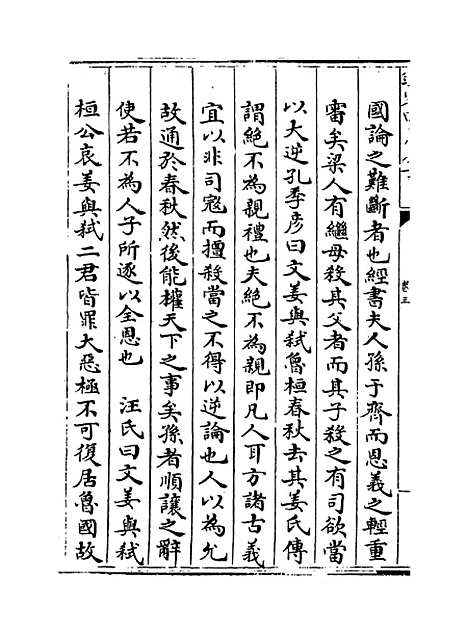 國論之難斷者也經書夫人孫于齊而恩義之輕重
審矣梁人有繼母殺其父者而其子殺之有司欲當
以大逆孔季彥曰文姜與弑魯桓春秋去其姜氏傳
謂絶不為親禮也夫絶不為親即凡人耳方諸古義
宜以非司冦而擅殺當之不得以逆論也人以為允
故通於春秋然後能權天下之事矣孫者順讓之辭
使若不為人子所逐以全恩也 汪氏曰文姜與弑
桓公哀姜與弑二君皆罪大惡極不可復居魯國故
卷三